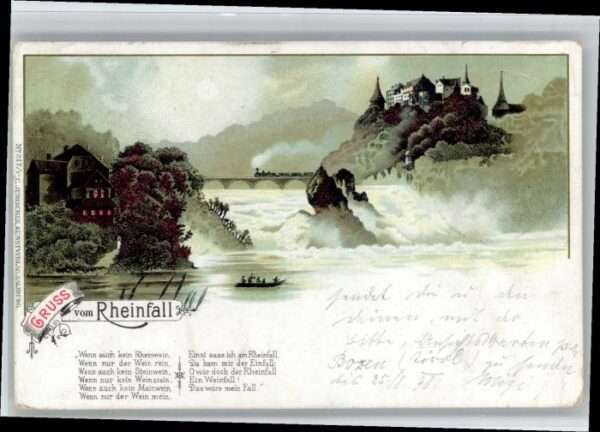 GRUSS
vom Rheinfall
„Wenn auch kein Rheinwein,
Wenn nur der Wein rein,
Wenn auch kein Steinwein,
Wenn nur kein Weinstein,
Wenn auch kein Mainwein,
Wenn nur der Wein mein.
Einst sass ich am Rheinfall,
Da kam mir der Einfall:
O wär doch der Rheinfall
Ein Weinfall!
Das wäre mein Fall."
sendet dir u. den
deinen mit der
Bitte, Ansichtskarten
Bozen Tirol zu senden